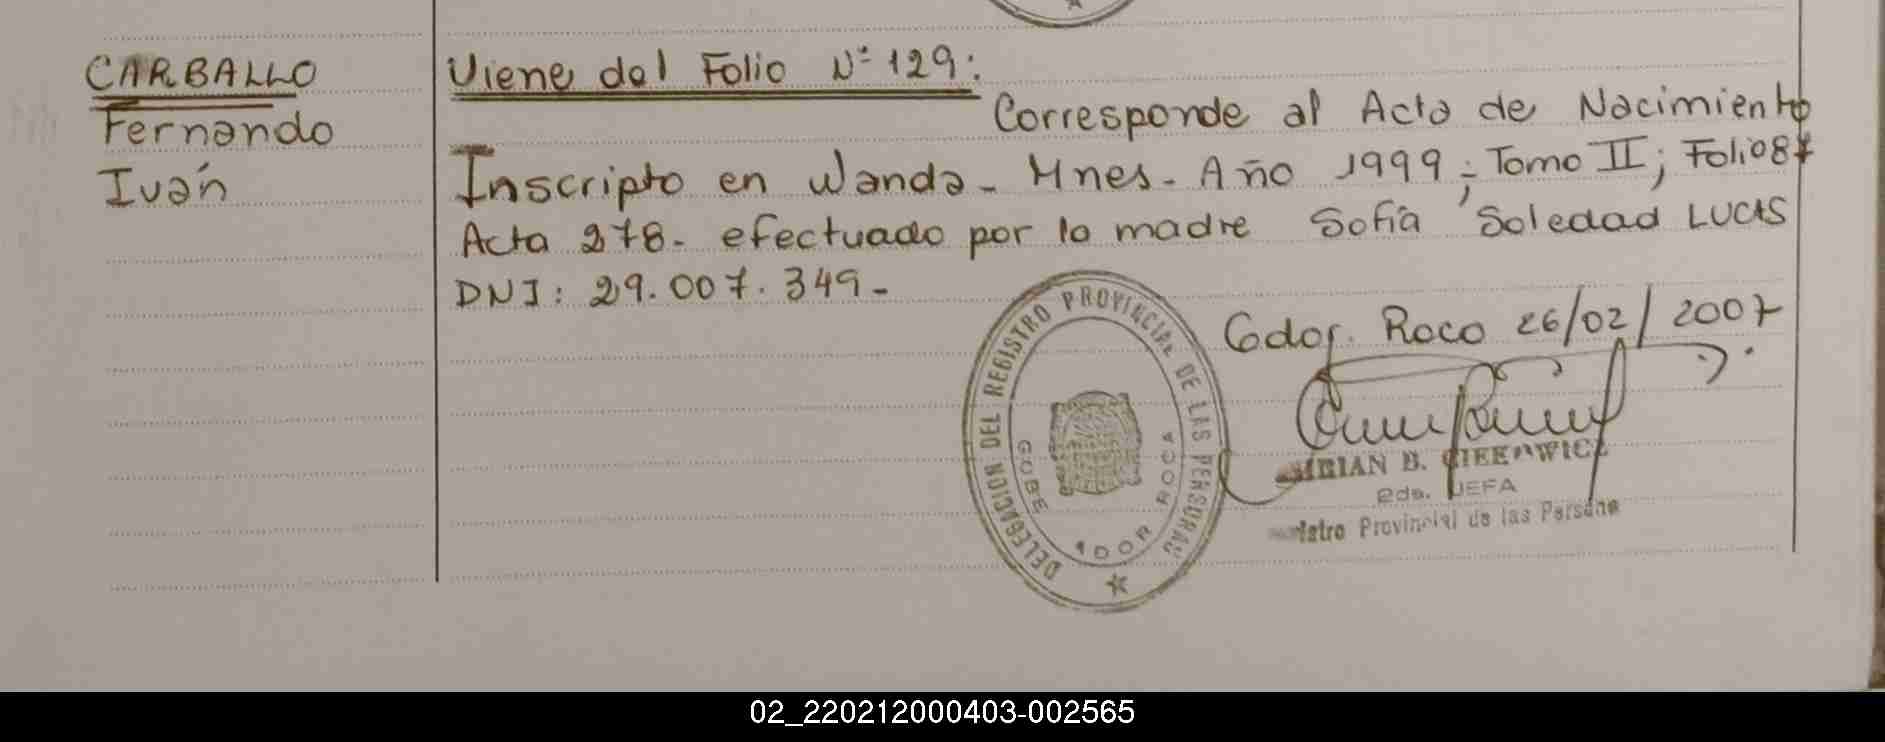 CARBALLO
Fernando
Iván
Viene del Folio Nº 129:
Corresponde al Acta de Nacimiento
Inscripto en Wanda - Mnes - Año 1999; Tomo II; Folio 87
Acta 278 - efectuado por la madre Sofía Soledad LUCAS
DNI: 29.007.349 -
Gdor. Roca 26/02/2007
DELEGACION DEL REGISTRO PROVINCIAL DE LAS PERSONAS
GOBERNADOR ROCA
B.
2da. JEFA
Provincial de las
02_220212000403-002565